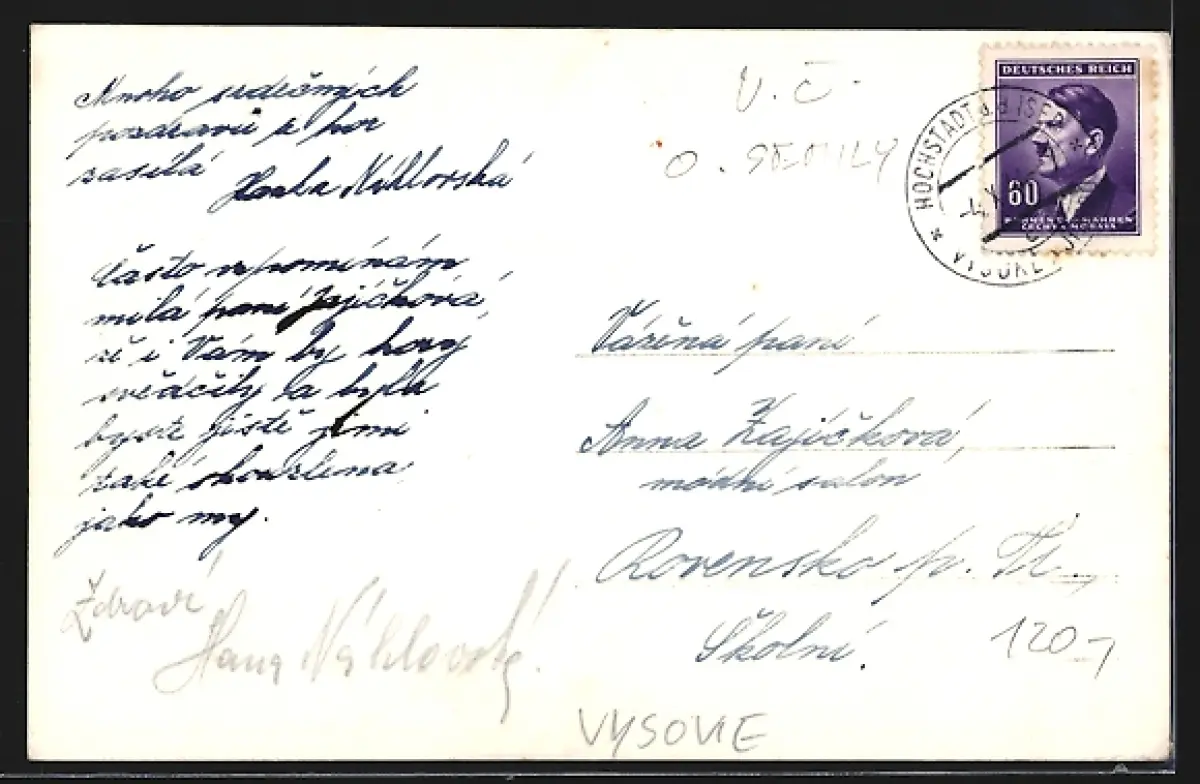 Mnoho srdečných
pozdravů z hor
zasílá
Často vzpomínám
milá paní Zajíčková,
že i Vám by hory
svědčily a byla
byste jistě jimi
také okouzlena
jako my.
Zdraví
Hana
V. Č.
O. SEMILY
DEUTSCHES REICH
60
BÖHMEN U. MÄHREN
ČECHY A MORAVA
HOCHSTADT a.d. ISER
VYSOKÉ
Vážená paní
Anna Zajíčková,
módní salon
Rovensko p. Tr.
Školní.
120,-
VYSOKIE